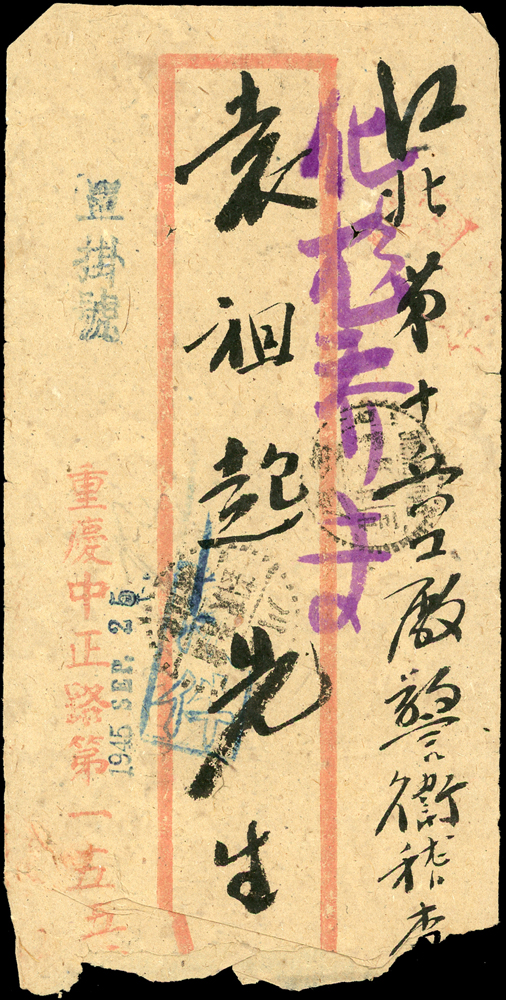 江北第十兵工廠警衛稽查
袁祖起先生
單掛號
1945 SEP. 25
重慶中正路第一五五